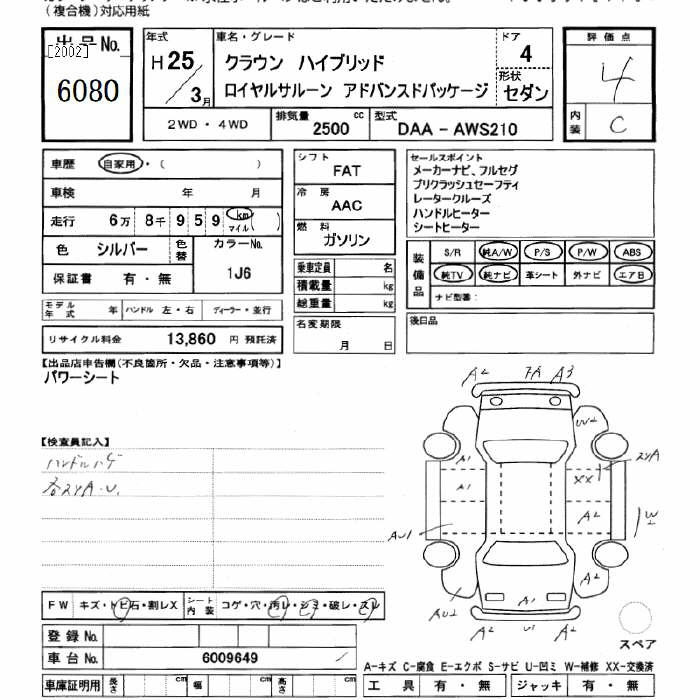 (複合機)対応用紙
出品No.
[2002]
6080
年式
H 25
/ 3月
車名・グレード
クラウン ハイブリッド
ロイヤルサルーン アドバンスドパッケージ
ドア
4
形状
セダン
評価点
4
内装
C
2WD・4WD
排気量
2500 cc
型式
DAA - AWS210
車歴 自家用・( )
車検 年 月
走行 6万 8千 9 5 9 km マイル ( )
色 シルバー 色替
カラーNo.
1J6
保証書 有・無
モデル年式 年 ハンドル 左・右 ディーラー・並行
リサイクル料金 13,860 円 預託済
シフト
FAT
冷房
AAC
燃料
ガソリン
乗車定員 名
積載量 kg
総重量 kg
名変期限
月 日
セールスポイント
メーカーナビ、フルセグ
プリクラッシュセーフティ
レータークルーズ
ハンドルヒーター
シートヒーター
装備品
S/R 純A/W P/S P/W ABS
純TV 純ナビ 革シート 外ナビ エアB
ナビ型番:
後日品
【出品店申告欄(不良箇所・欠品・注意事項等)】
パワーシート
【検査員記入】
ハンドルハゲ
各24A.U.
FW キズ・トビ石・割レX
シート内装 コゲ・穴・汚レ・シミ・破レ・スレ
登録No.
車台No. 6009649
車庫証明用 長さ cm 幅 cm 高さ cm
A2 7A A3
W2
A1
A1
XX
24A
A2
W
AU1
A2
AU2
A1
A2 U1 A2
スペア
A-キズ C-腐食 E-エクボ S-サビ U-凹ミ W-補修 XX-交換済
工具 有・無 ジャッキ 有・無